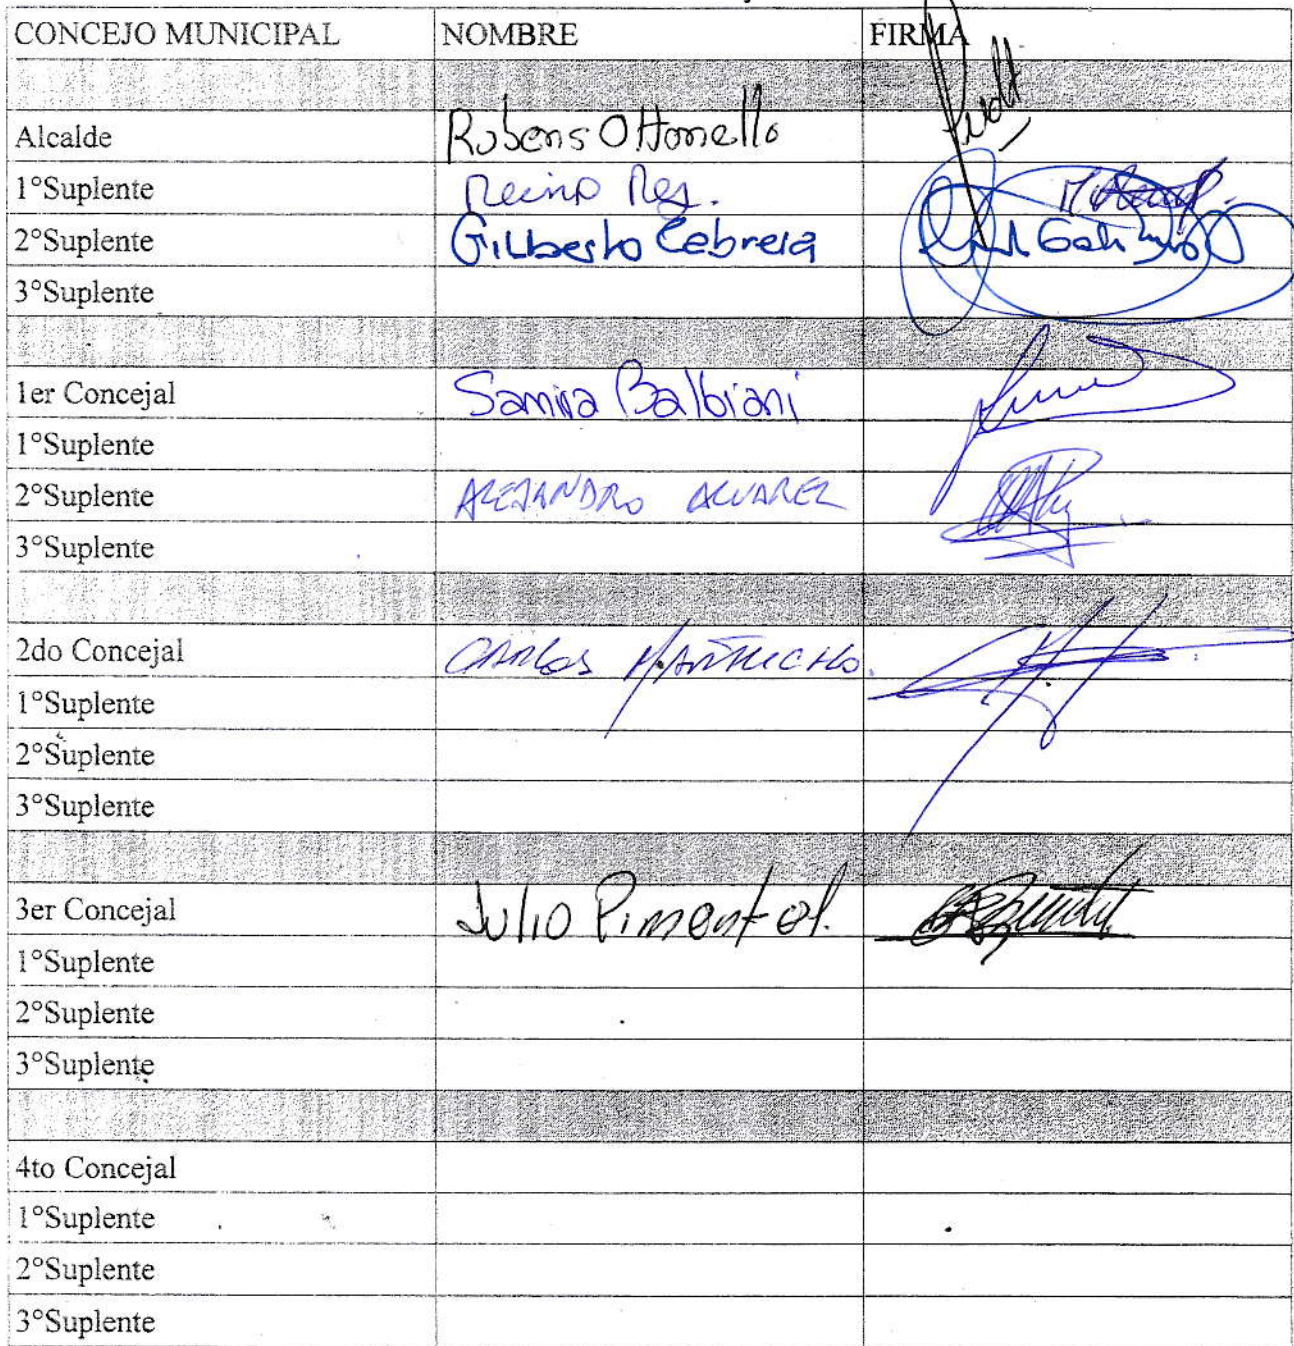 CONCEJO MUNICIPAL NOMBRE FIRMA
Alcalde Rubens Ottonello
1°Suplente
2°Suplente Gilberto Cabrera
3°Suplente
1er Concejal Samira Balbiani
1°Suplente
2°Suplente ALEJANDRO ALVAREZ
3°Suplente
2do Concejal CARLOS
1°Suplente
2°Suplente
3°Suplente
3er Concejal Julio Pimentel.
1°Suplente
2°Suplente
3°Suplente
4to Concejal
1°Suplente
2°Suplente
3°Suplente